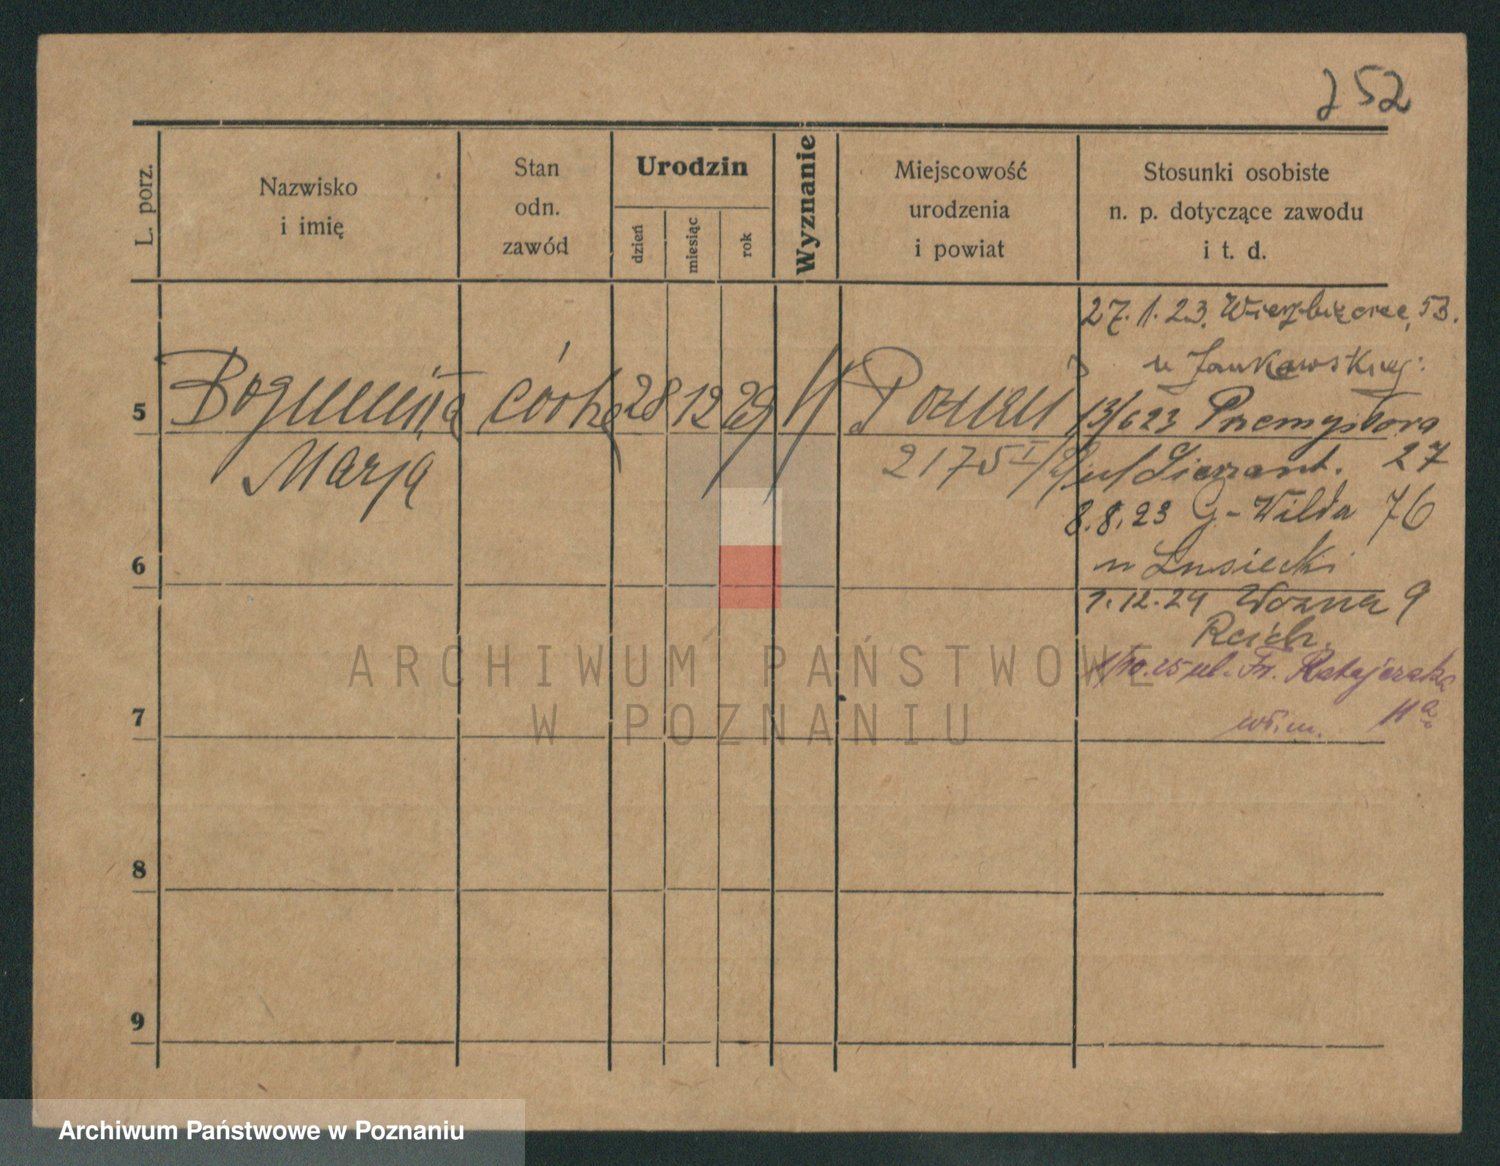 252
L. porz.
Nazwisko
i imię
Stan
odn.
zawód
Urodzin
dzień
miesiąc
rok
Wyznanie
Miejscowość
urodzenia
i powiat
Stosunki osobiste
n. p. dotyczące zawodu
i t. d.
27. 1. 23. 53.
u Jankowskiej
5 Bogumiła córka 28 12 29 Poznań
13/6 23 Przemysłowa
Marja
2175 I
27
8.8.23 G-Wilda 76
u Lusiecki
6
1.12.24 Wozna 9
Reich.
1/10.25 ul. Fr. Ratajczaka
11a
wł. m.
7
8
9
ARCHIWUM PAŃSTWOWE
W POZNANIU
Archiwum Państwowe w Poznaniu